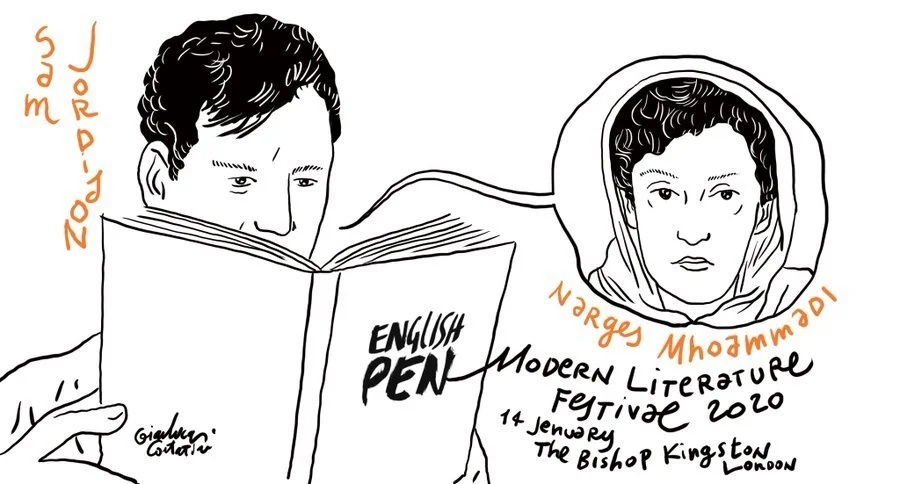 Sam
JORDISON
ENGLISH
PEN
Narges Mhoammadi
MODERN LITERATURE
FESTIVAL 2020
14 Jenuary
The Bishop Kingston
LONDON